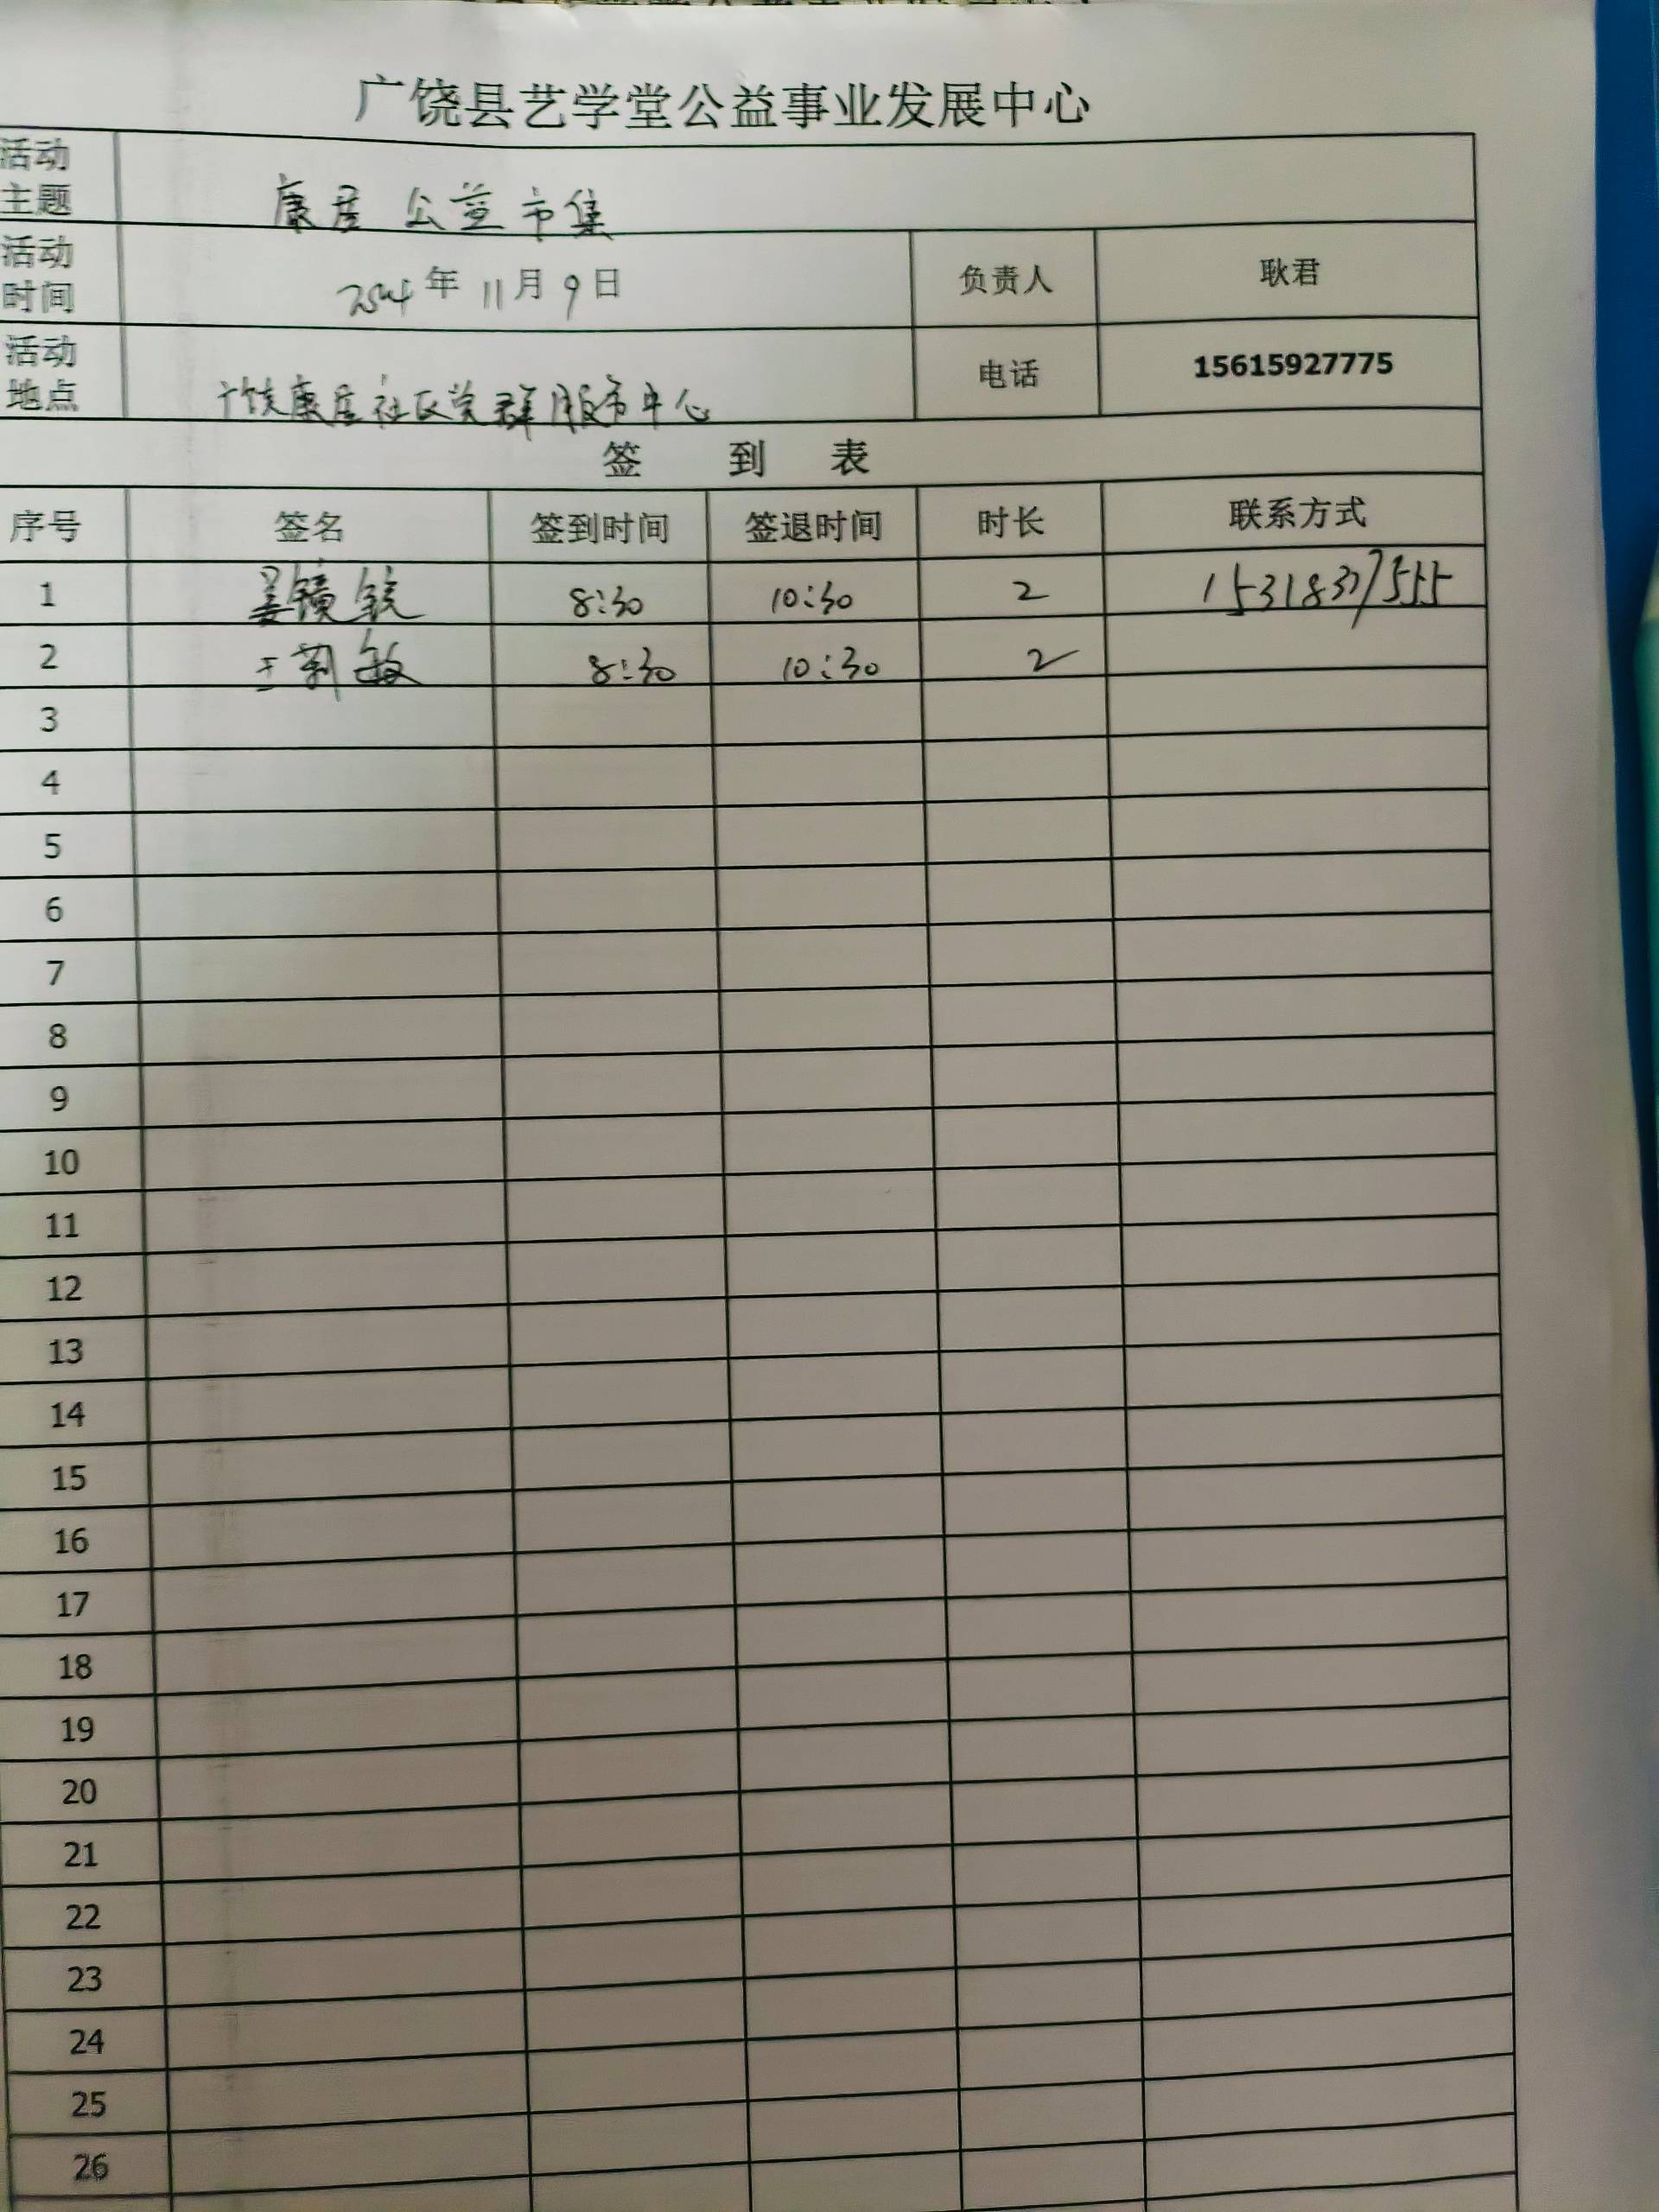 广饶县艺学堂公益事业发展中心
活动主题 康居公益市集
活动时间 2024年11月9日 负责人 耿君
活动地点 广饶康居社区党群服务中心 电话 15615927775
签 到 表
序号 签名 签到时间 签退时间 时长 联系方式
1 8:30 10:30 2
2 王莉敏 8:30 10:30 2
3
4
5
6
7
8
9
10
11
12
13
14
15
16
17
18
19
20
21
22
23
24
25
26